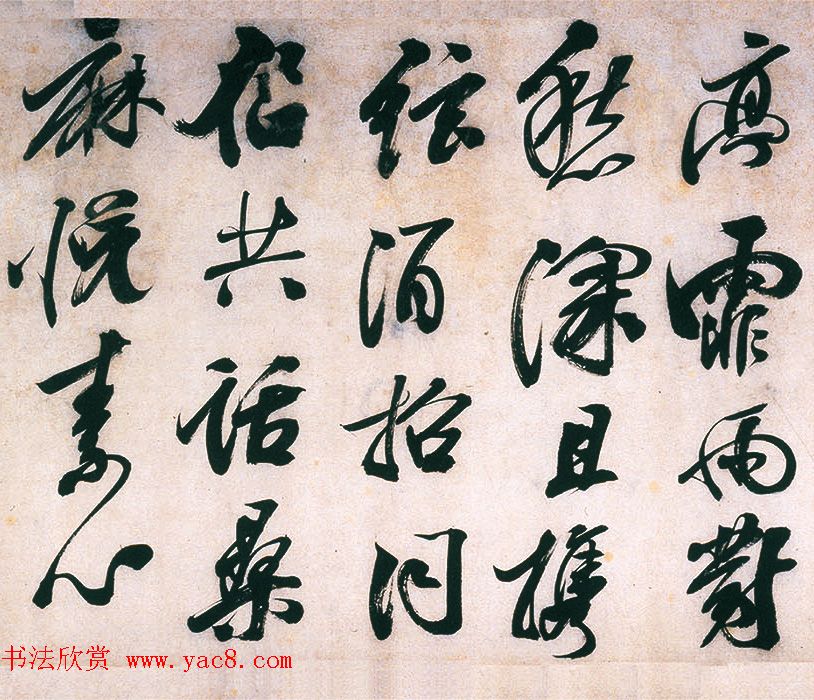 霏雨對
愁深且攜
絃酒招同
共話桑
麻悅素心
书法欣赏 www.yac8.com